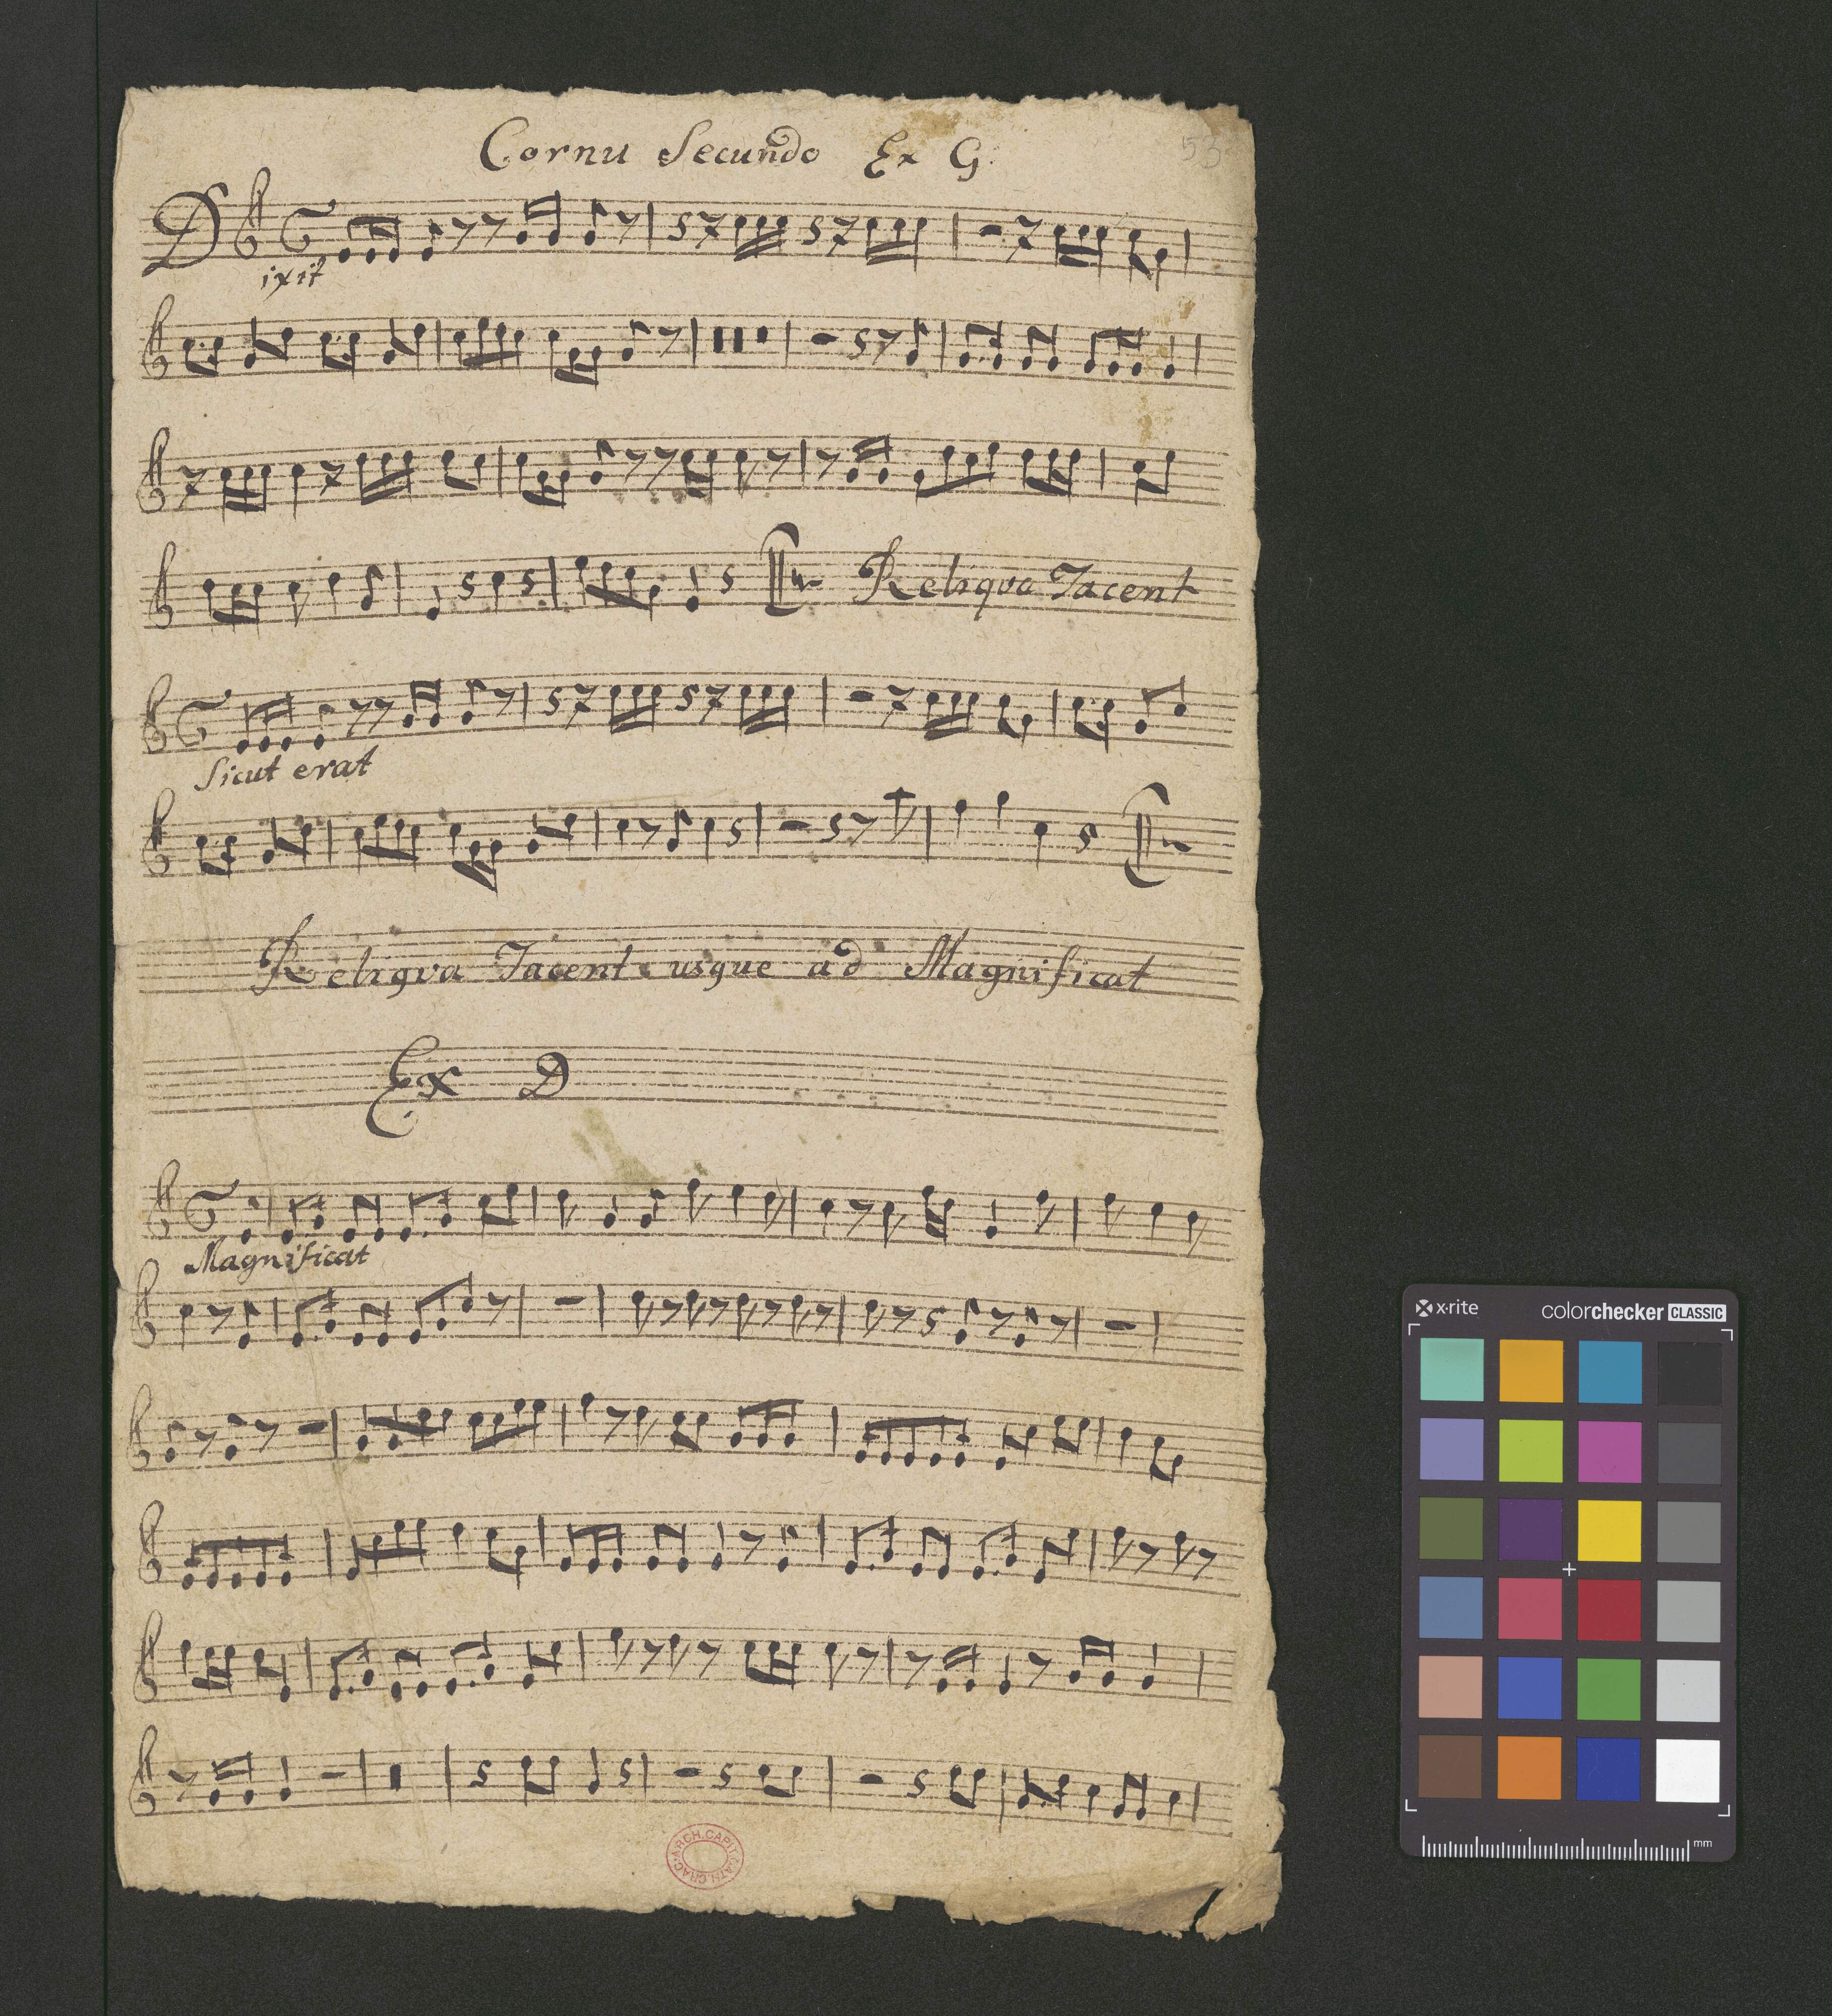 Cornu Secundo Ex G.
53
Dixit
Reliqva Tacent
Sicut erat
Reliqva Tacent usque ad Magnificat
Ex D
Magnificat
ARCH.CAPIT.CATH.CRAC.
x·rite colorchecker CLASSIC
mm